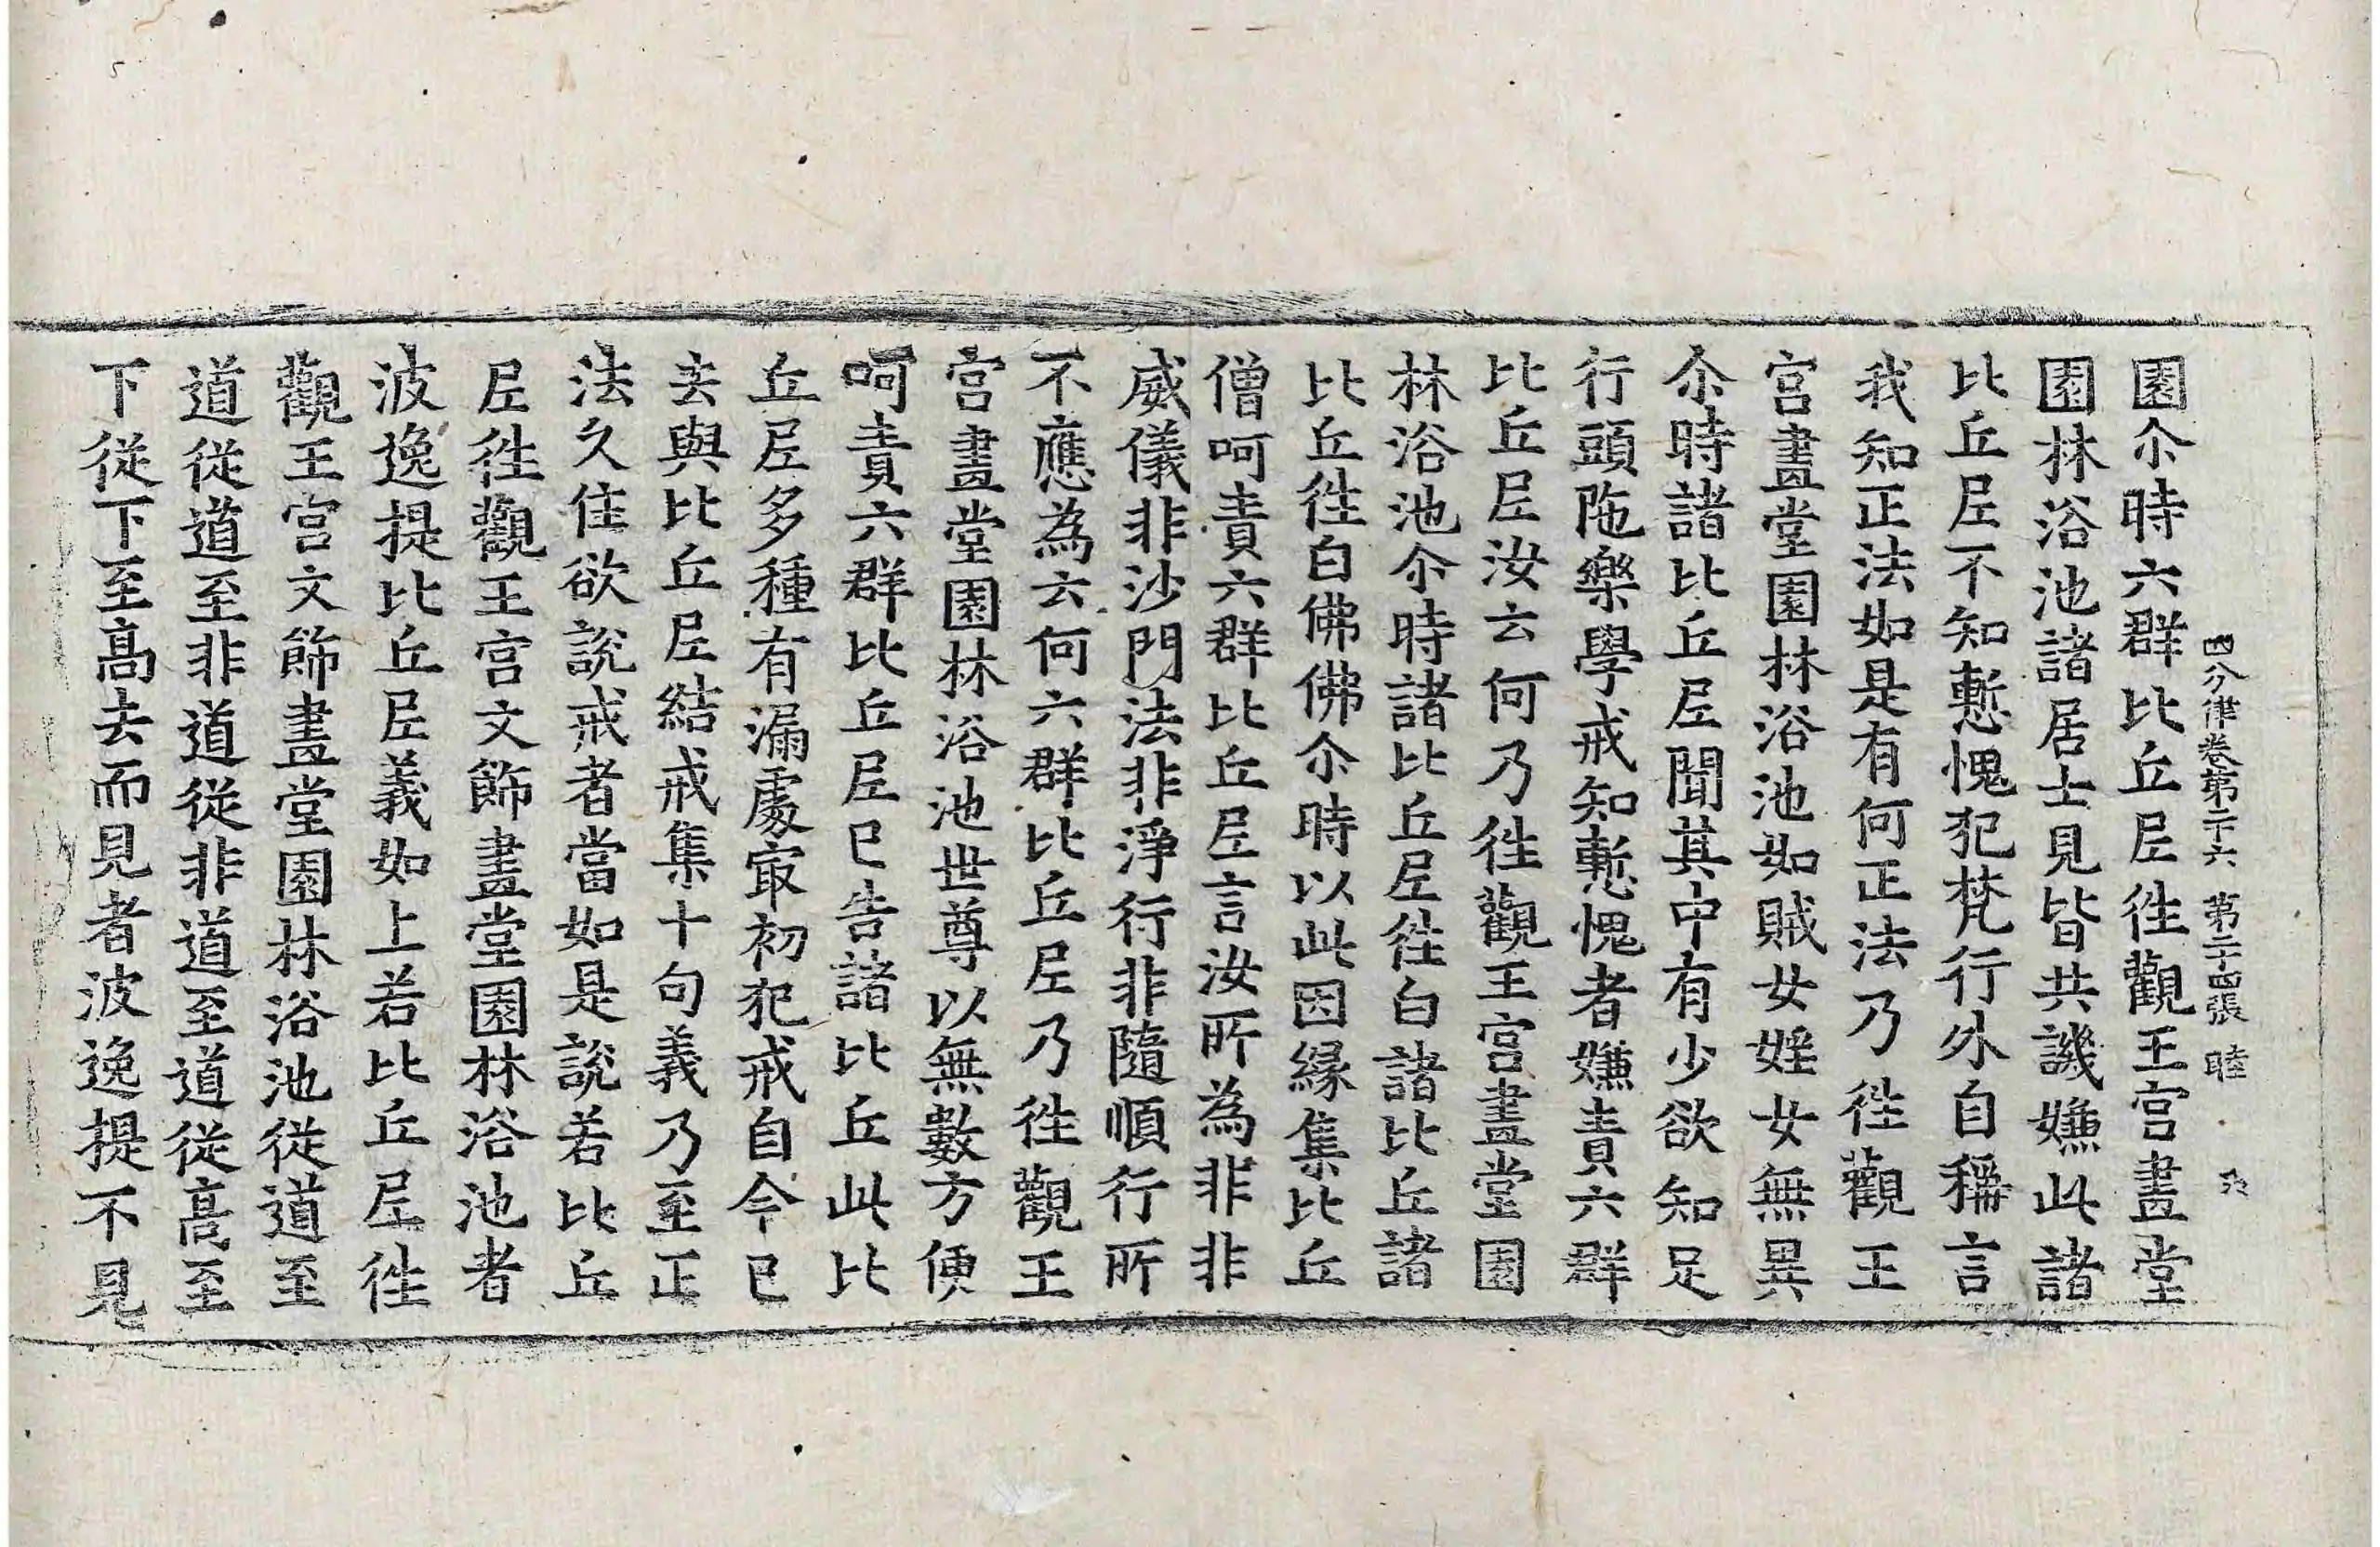 四分律卷第二十六　第二十四張　睦
園尒時六群比丘尼往觀王宮畫堂
園林浴池諸居士見皆共譏嫌此諸
比丘尼不知慙愧犯梵行外自稱言
我知正法如是有何正法乃往觀王
宮畫堂園林浴池如賊女婬女無異
尒時諸比丘尼聞其中有少欲知足
行頭陁樂學戒知慙愧者嫌責六群
比丘尼汝云何乃往觀王宮畫堂園
林浴池尒時諸比丘尼往白諸比丘諸
比丘往白佛佛尒時以此因緣集比丘
僧呵責六群比丘尼言汝所為非非
威儀非沙門法非淨行非隨順行所
不應為云何六群比丘尼乃往觀王
宮畫堂園林浴池世尊以無數方便
呵責六群比丘尼已告諸比丘此比
丘尼多種有漏處㝡初犯戒自今已
去與比丘尼結戒集十句義乃至正
法久住欲說戒者當如是說若比丘
尼往觀王宮文飾畫堂園林浴池者
波逸提比丘尼義如上若比丘尼往
觀王宮文飾畫堂園林浴池從道至
道從道至非道從非道至道從高至
下從下至高去而見者波逸提不見